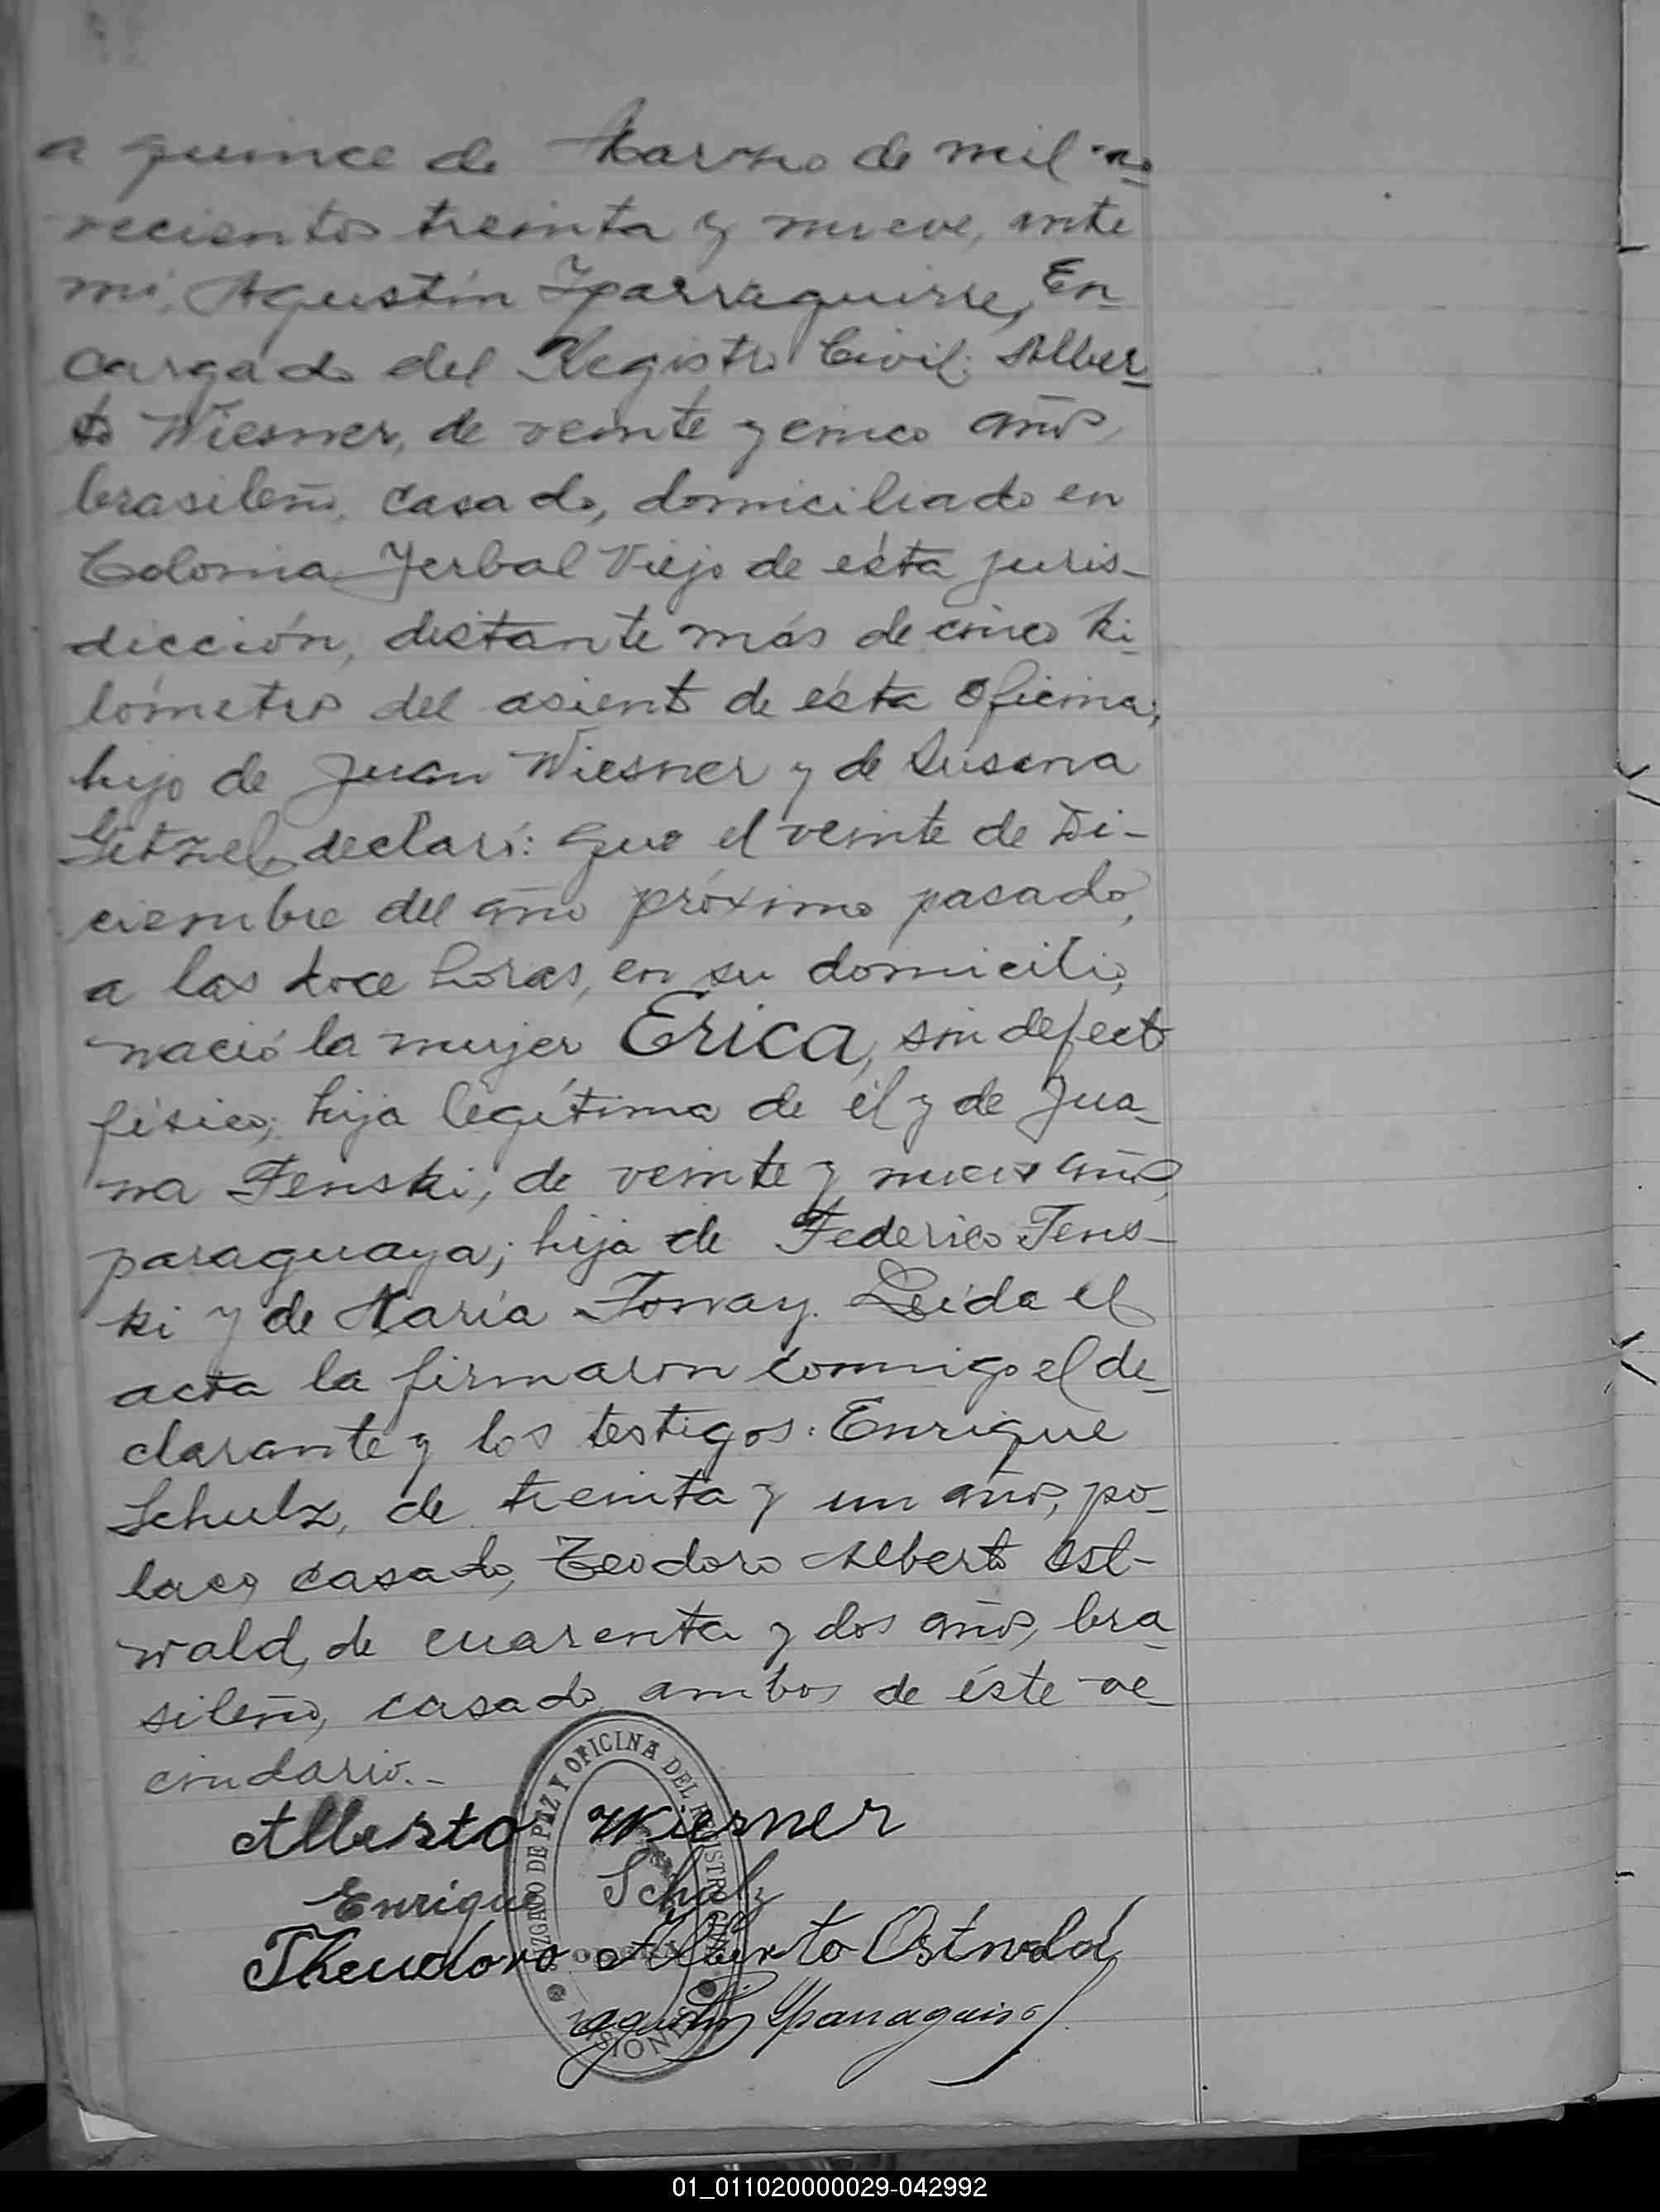 a quince de Marzo de mil no
vecientos treinta y nueve, ante
mi, Agustín Yparraguirre, En
cargado del Registro Civil: Alber
to Wiesner, de veinte y cinco años
brasileño, casado, domiciliado en
Colonia Yerbal Viejo de ésta juris-
dicción, distante más de cinco ki
lómetros del asiento de ésta oficina;
hijo de Juan Wiesner y de Susana
declaró: Que el veinte de Di-
ciembre del año próximo pasado,
a las doce horas, en su domicilio,
nació la mujer Erica, sin defecto
físico; hija legítima de él y de Jua
na Fenski, de veinte y nueve años,
paraguaya; hija de Federico Fens-
ki y de María Leída el
acta la firmaron conmigo el de
clarante y los testigos: Enrique
Schulz, de treinta y un años, po
laco, casado, Teodoro Alberto Ost-
wald, de cuarenta y dos años, bra
sileño, casado, ambos de éste ve
cindario.-
JUZGADO DE PAZ Y OFICINA DEL REGISTRO
MISIONES
Alberto Wiesner
Enrique Schulz
Theudoro Alberto Ostwald
Agustín Yparraguirre